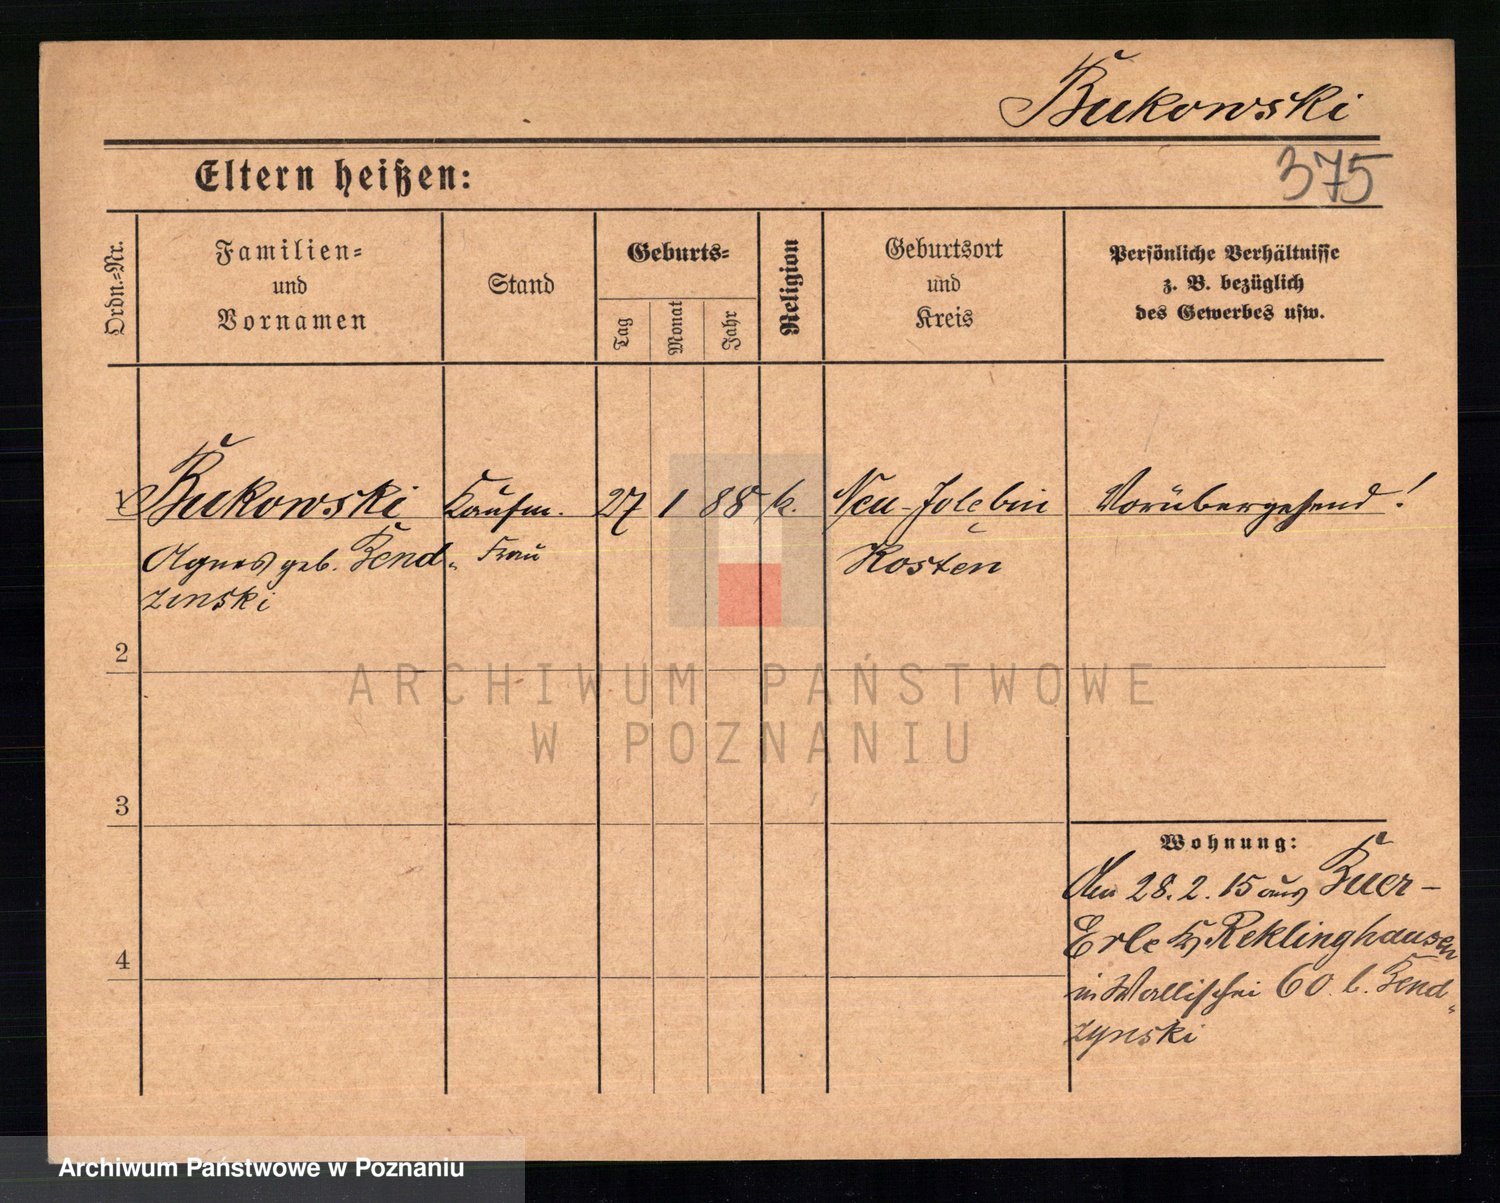 Bukowski
375
Eltern heißen:
Ordn.-Nr.
Familien-
und
Vornamen
Stand
Geburts-
Tag
Monat
Jahr
Religion
Geburtsort
und
Kreis
Persönliche Verhältnisse
z. B. bezüglich
des Gewerbes usw.
1 Bukowski Kaufm. 27 1 88 k. Neu-Jolebin Vorübergehend!
Agnes geb. Bend- Frau Kosten
zinski
2
ARCHIWUM PAŃSTWOWE
W POZNANIU
3
Wohnung:
Am 28.2.15 aus Buer-
Erle Kr. Reklinghausen
in Wallischei 60. b. Bend-
zynski
4
Archiwum Państwowe w Poznaniu